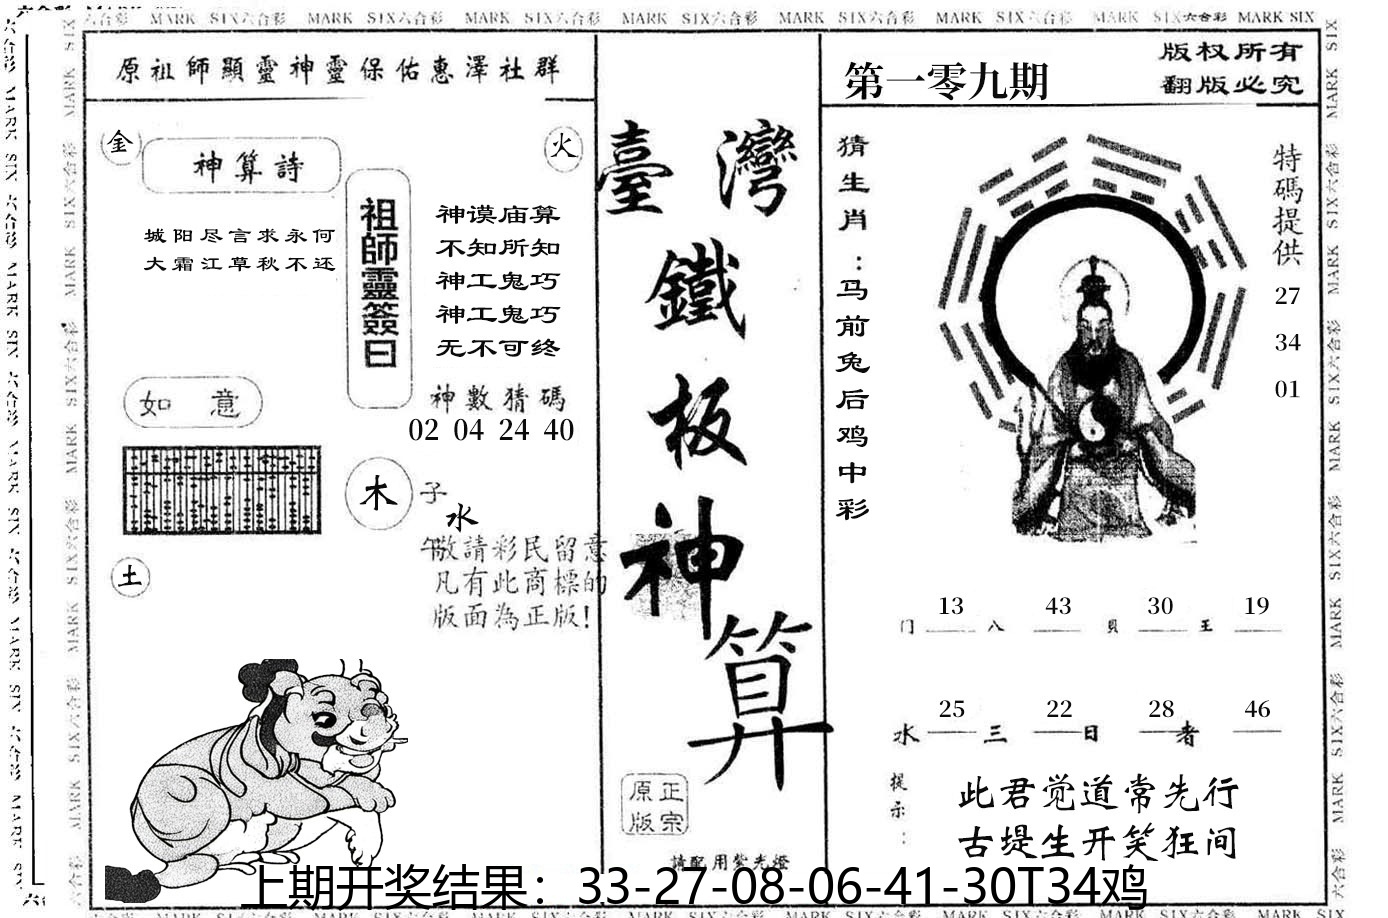 六合彩 MARK SIX六合彩 MARK SIX六合彩 MARK SIX六合彩 MARK SIX六合彩 MARK SIX六合彩 MARK SIX六合彩 MARK SIX六合彩 MARK SIX
原祖師顯靈神靈保佑惠澤社群
金
火
神算詩
城阳尽言求永何
大霜江草秋不还
祖師靈簽曰
神谟庙算
不知所知
神工鬼巧
神工鬼巧
无不可终
神數猜碼
02 04 24 40
如意
木
子
水
午
土
敬請彩民留意
凡有此商標的
版面為正版!
臺灣
鐵
板
神
算
原正
版宗
請配用紫光燈
第一零九期
版权所有
翻版必究
猜生肖:马前兔后鸡中彩
特碼提供
27
34
01
13 43 30 19
门 八 貝 王
25 22 28 46
水 三 日 者
提示:
此君觉道常先行
古堤生开笑狂间
上期开奖结果：33-27-08-06-41-30T34鸡